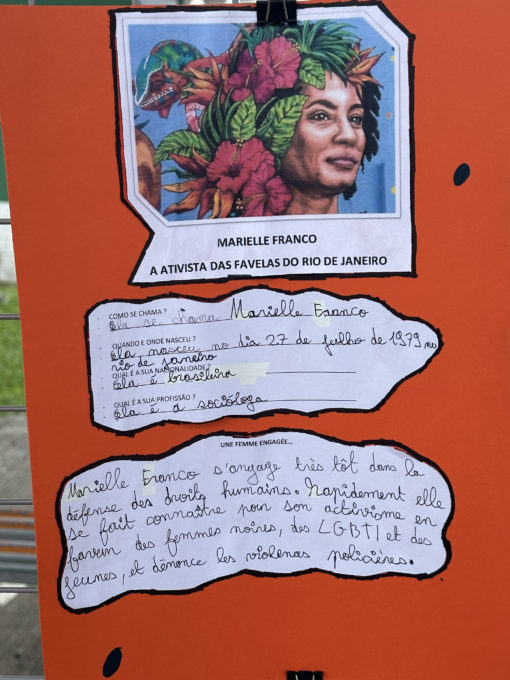 MARIELLE FRANCO
A ATIVISTA DAS FAVELAS DO RIO DE JANEIRO
- COMO SE CHAMA ?
Ela se chama Marielle Franco
- QUANDO E ONDE NASCEU ?
Ela nasceu no dia 27 de julho de 1979 no
rio de janeiro
- QUAL É A SUA NACIONALIDADE ?
Ela é brasileira
- QUAL É A SUA PROFISSÃO ?
Ela é a socióloga
UNE FEMME ENGAGÉE...
Marielle Franco s'angage très tôt dans la
défense des droits humains. Rapidement elle
se fait connaître pour son activisme en
faveur des femmes noires, des LGBTI et des
jeunes, et dénonce les violenas policières.